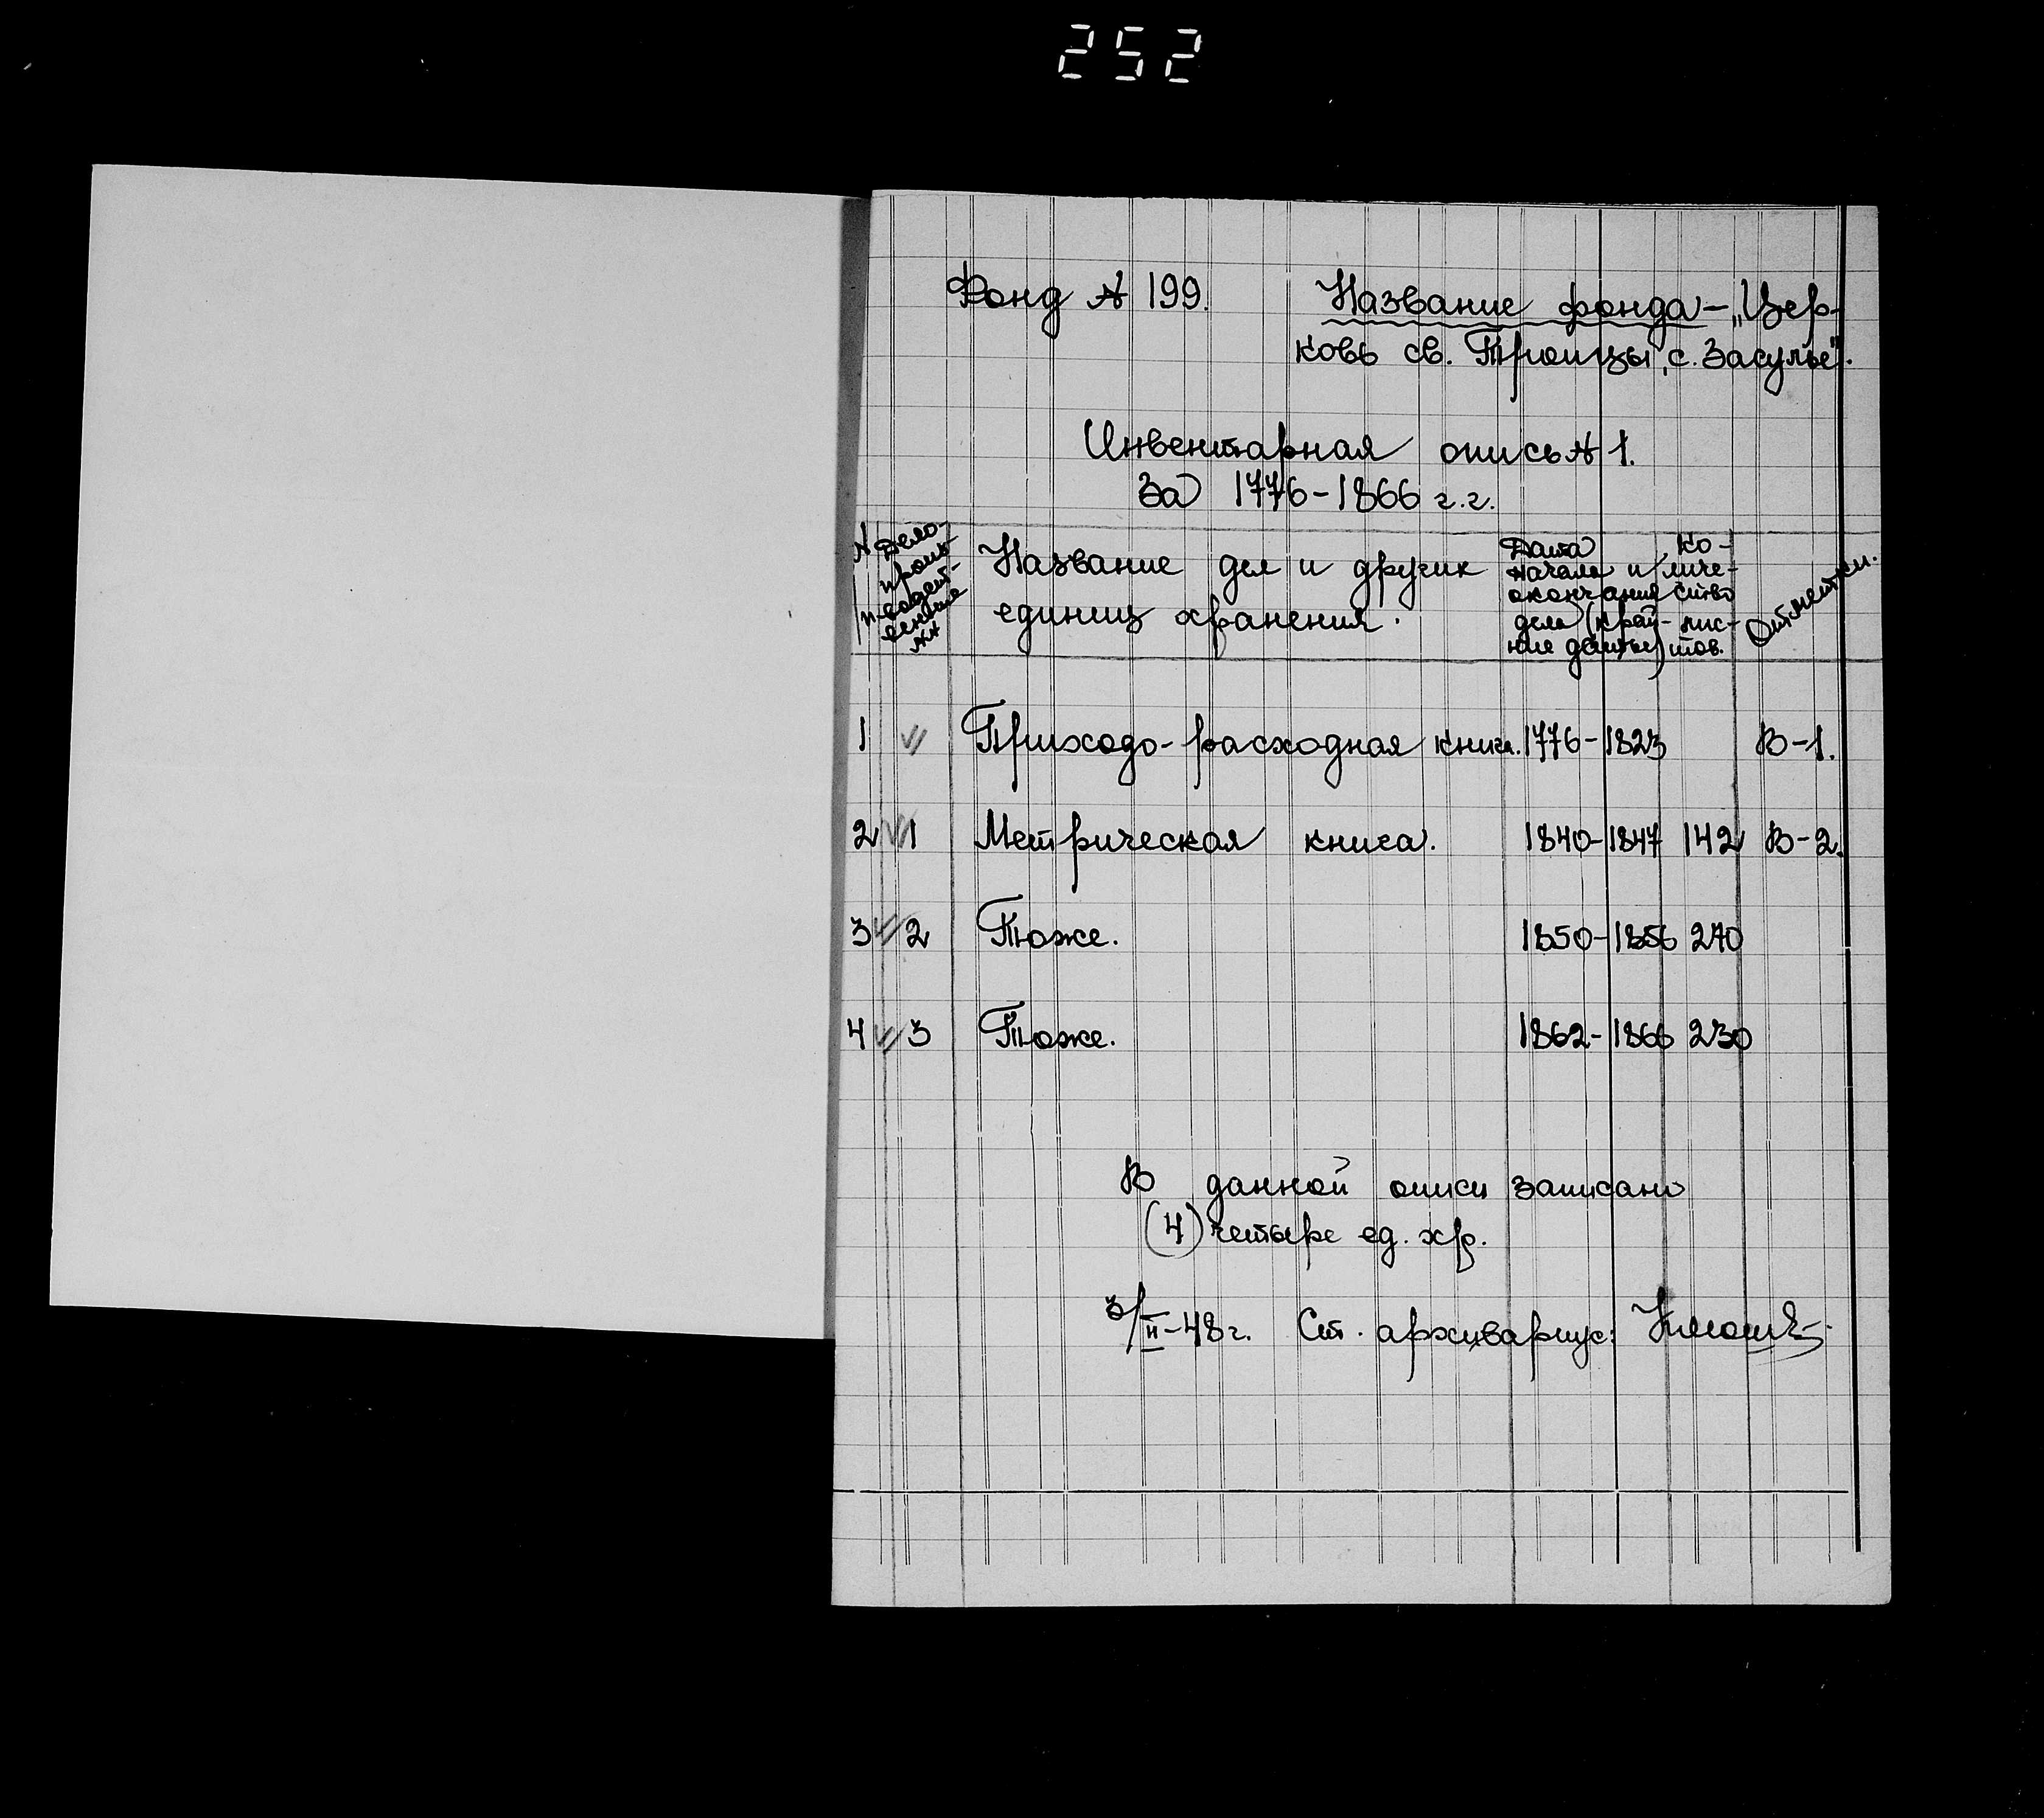 252
Фонд № 199. Название фонда – „Цер-
ковь св. Троицы, с. Засулье".
Инвентарная опись № 1.
За 1776-1866 г.г.
№ п/п Дело-произ-водст-венные №№ Название дел и других единиц хранения. Дата начала и окончания дела (край-ние даты) Ко-личе-ство лис-тов. Отметки.
1 Приходо-расходная книга. 1776-1823 В-1.
2 1 Метрическая книга. 1840-1847 142 В-2.
3 2 Тоже. 1850-1856 270
4 3 Тоже. 1862-1866 230
В данной описи записано
(4) четыре ед. хр.
3/II-48 г. Ст. архивариус: